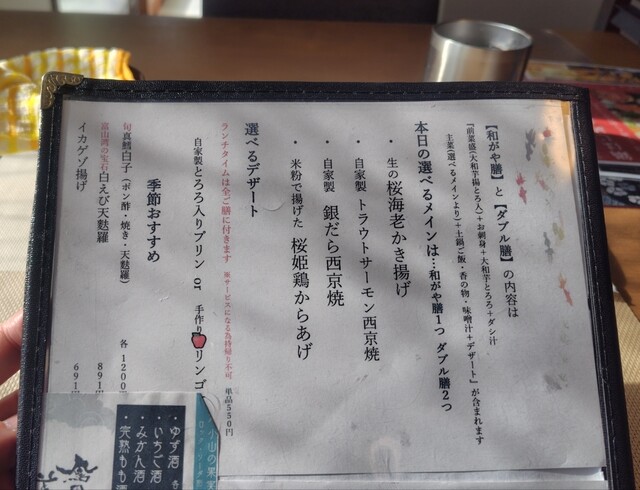 【和がや膳】と【ダブル膳】の内容は
『前菜盛(大和芋揚とろ入)+お刺身+大和芋とろろ+ダシ汁
主菜(選べるメインより)+土鍋ご飯・香の物・味噌汁+デザート』が含まれます
本日の選べるメインは…和がや膳1つ ダブル膳2つ
・生の桜海老かき揚げ
・自家製 トラウトサーモン西京焼
・自家製 銀だら西京焼
・米粉で揚げた 桜姫鶏からあげ
選べるデザート
ランチタイムは全ご膳に付きます ※サービスになる為持帰り不可 単品550円
自家製とろろ入りプリン or 手作りリンゴ
季節おすすめ
旬真鱈白子(ポン酢・焼き・天麩羅) 各1200
富山湾の宝石白えび天麩羅 891
イカゲソ揚げ 691
小山の果
・ゆず酒
・いちご酒
・みかん酒
・完熟もも酒